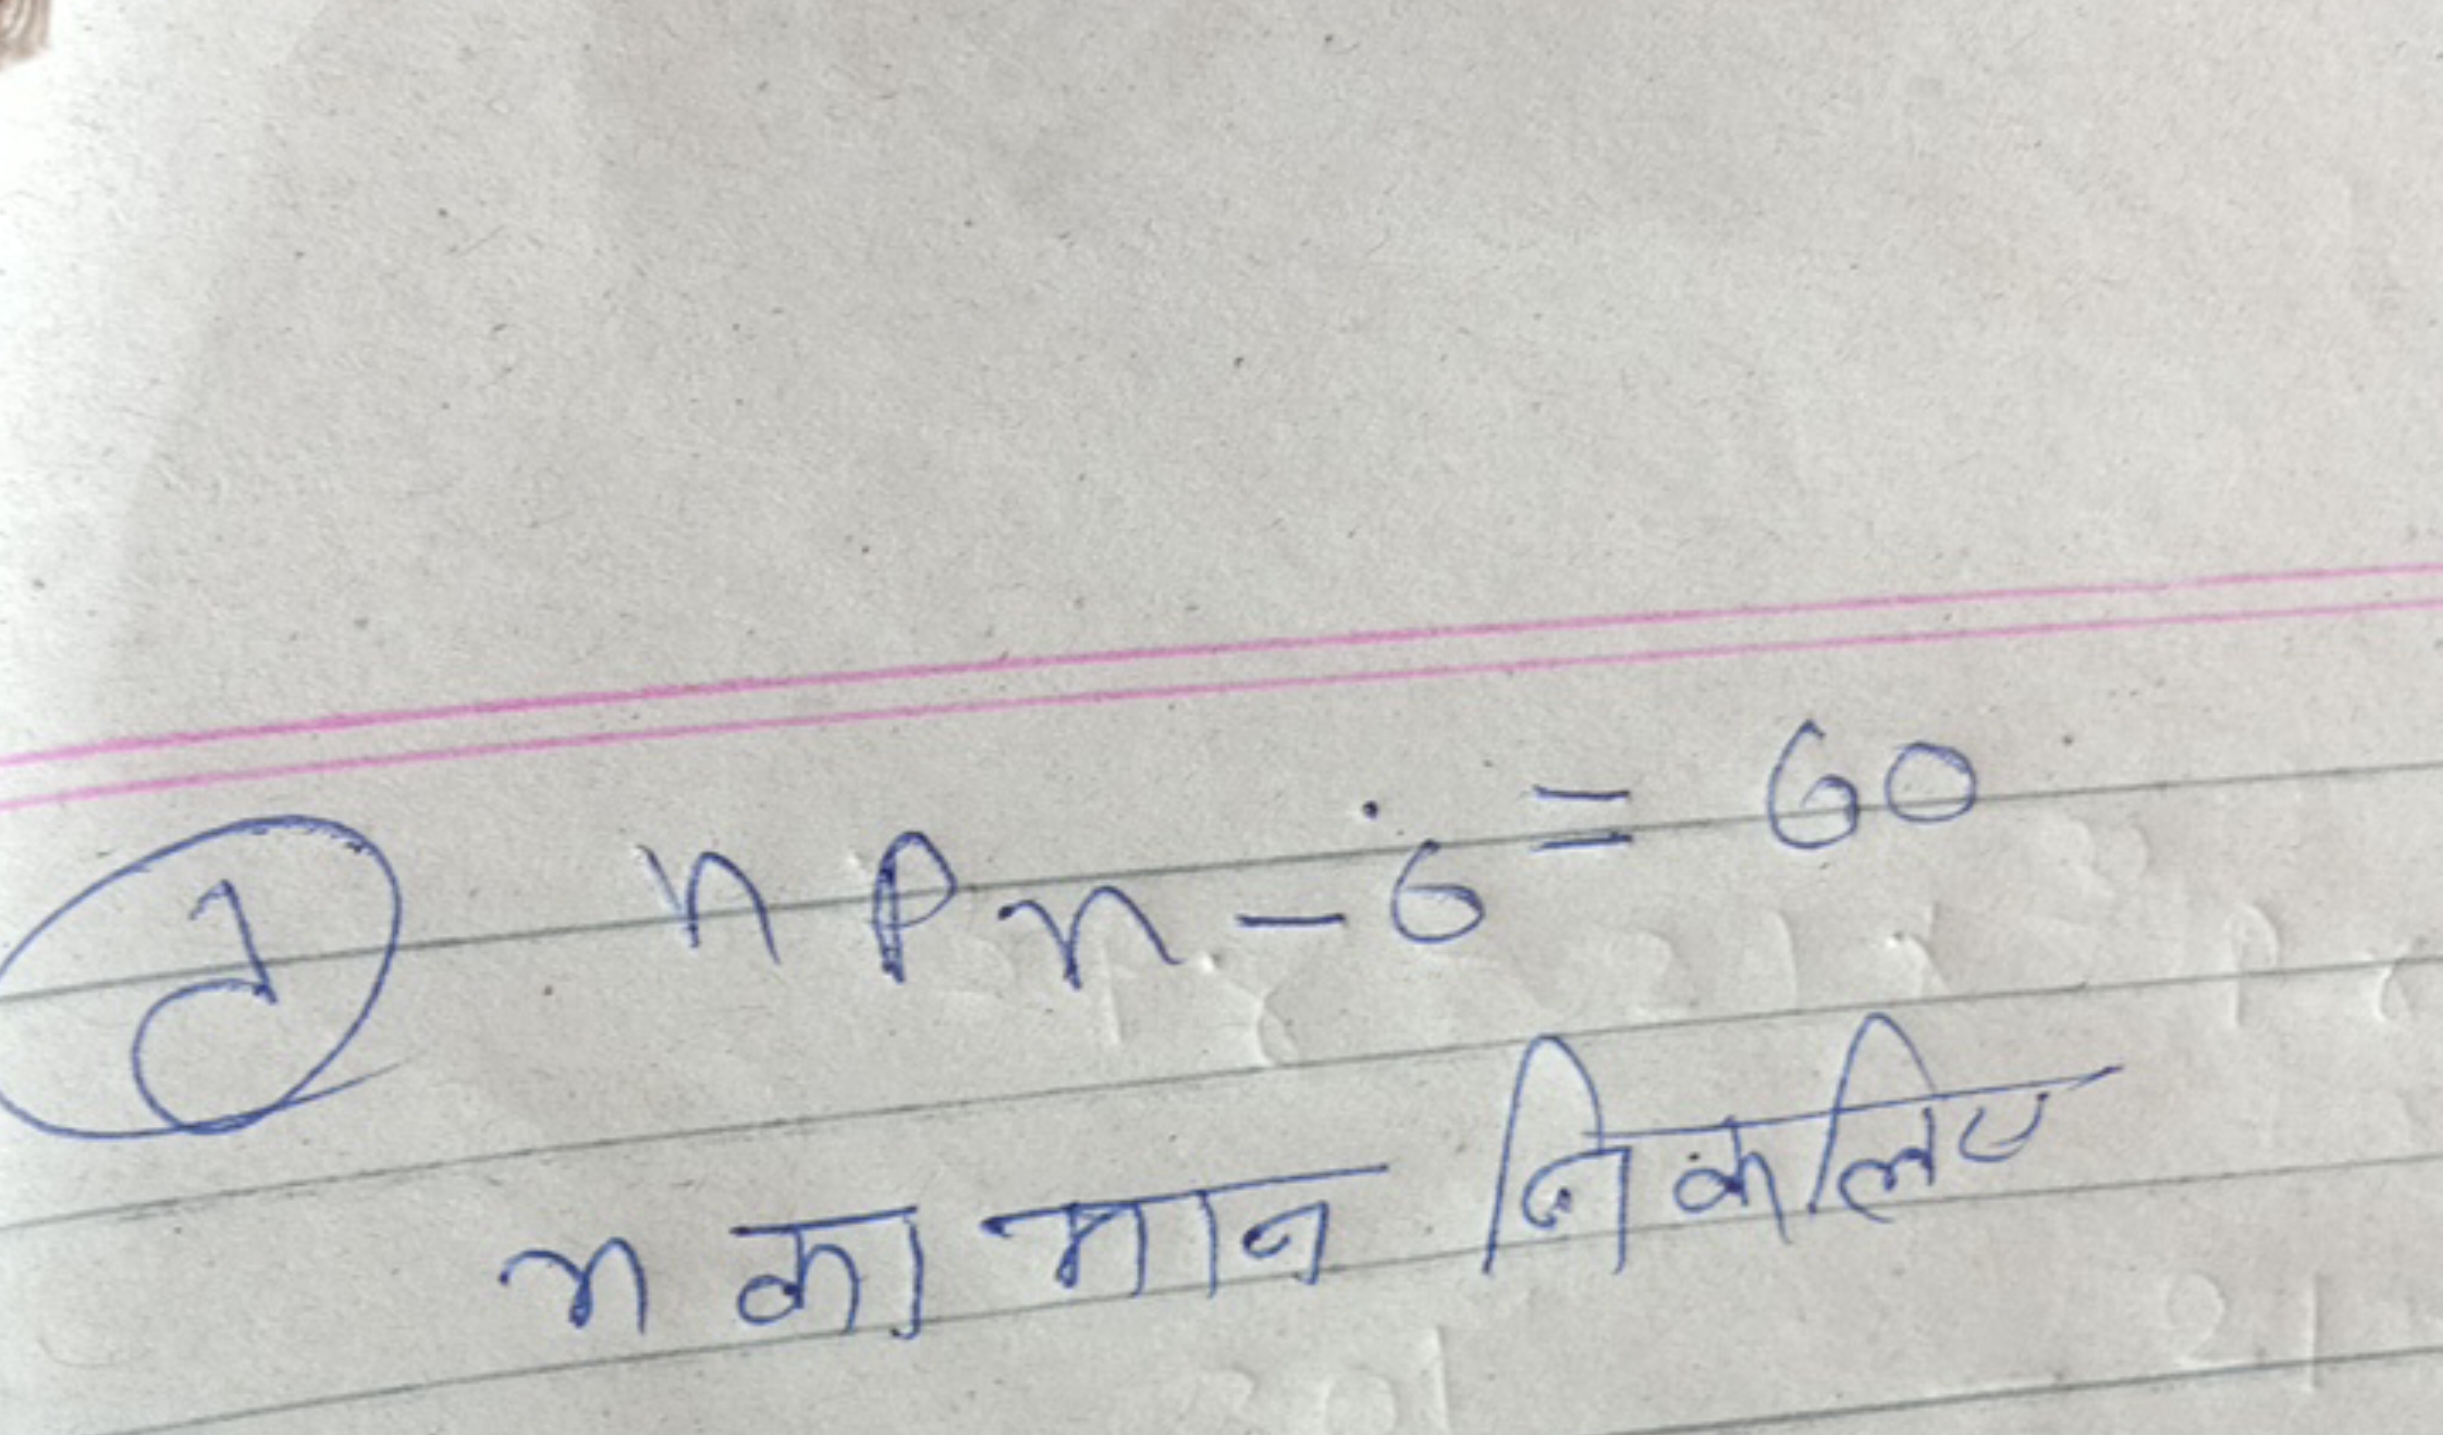 1 nPn-6 = 60
n का मान निकलिए